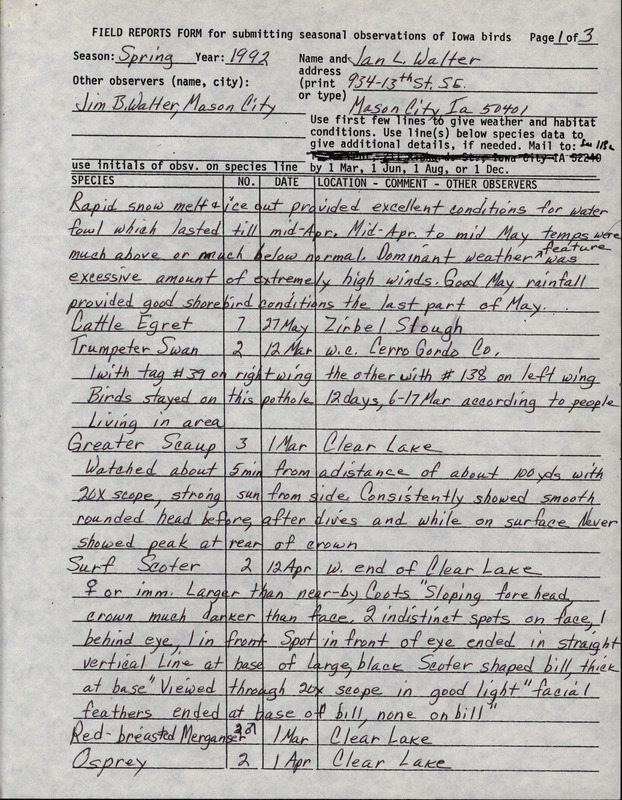 FIELD REPORTS FORM for submitting seasonal observations of Iowa birds Page 1 of 3
Season: Spring Year: 1992 Name and Jan L. Walter
address
Other observers (name, city): (print 934-13th St. S.E.
or type)
Jim B. Walter, Mason City Mason City Ia 50401
Use first few lines to give weather and habitat
conditions. Use line(s) below species data to
give additional details, if needed. Mail to:
Iowa City IA 52240
use initials of obsv. on species line by 1 Mar, 1 Jun, 1 Aug, or 1 Dec.
SPECIES NO. DATE LOCATION - COMMENT - OTHER OBSERVERS
Rapid snow melt & ice out provided excellent conditions for water
fowl which lasted till mid-Apr. Mid-Apr. to mid May temps were
much above or much below normal. Dominant weather ^feature was
excessive amount of extremely high winds. Good May rainfall
provided good shorebird conditions the last part of May.
Cattle Egret 7 27 May Zirbel Slough
Trumpeter Swan 2 12 Mar w.c. Cerro Gordo Co.
1 with tag #39 on right wing the other with #138 on left wing
Birds stayed on this pothole 12 days, 6-17 Mar according to people
Living in area
Greater Scaup 3 1 Mar Clear Lake
Watched about 5 min from a distance of about 100 yds with
20x scope, strong sun from side. Consistently showed smooth
rounded head before, after dives and while on surface Never
showed peak at rear of crown
Surf Scoter 2 12 Apr w. end of Clear Lake
♀ or imm. Larger than near-by Coots "Sloping forehead,
crown much darker than face. 2 indistinct spots on face, 1
behind eye, 1 in front Spot in front of eye ended in straight
vertical Line at base of large, black Scoter shaped bill, thick
at base" Viewed through 20x scope in good light "facial
feathers ended at base of bill, none on bill"
Red-breasted Merganser 2♂ 1 Mar Clear Lake
Osprey 2 1 Apr Clear Lake